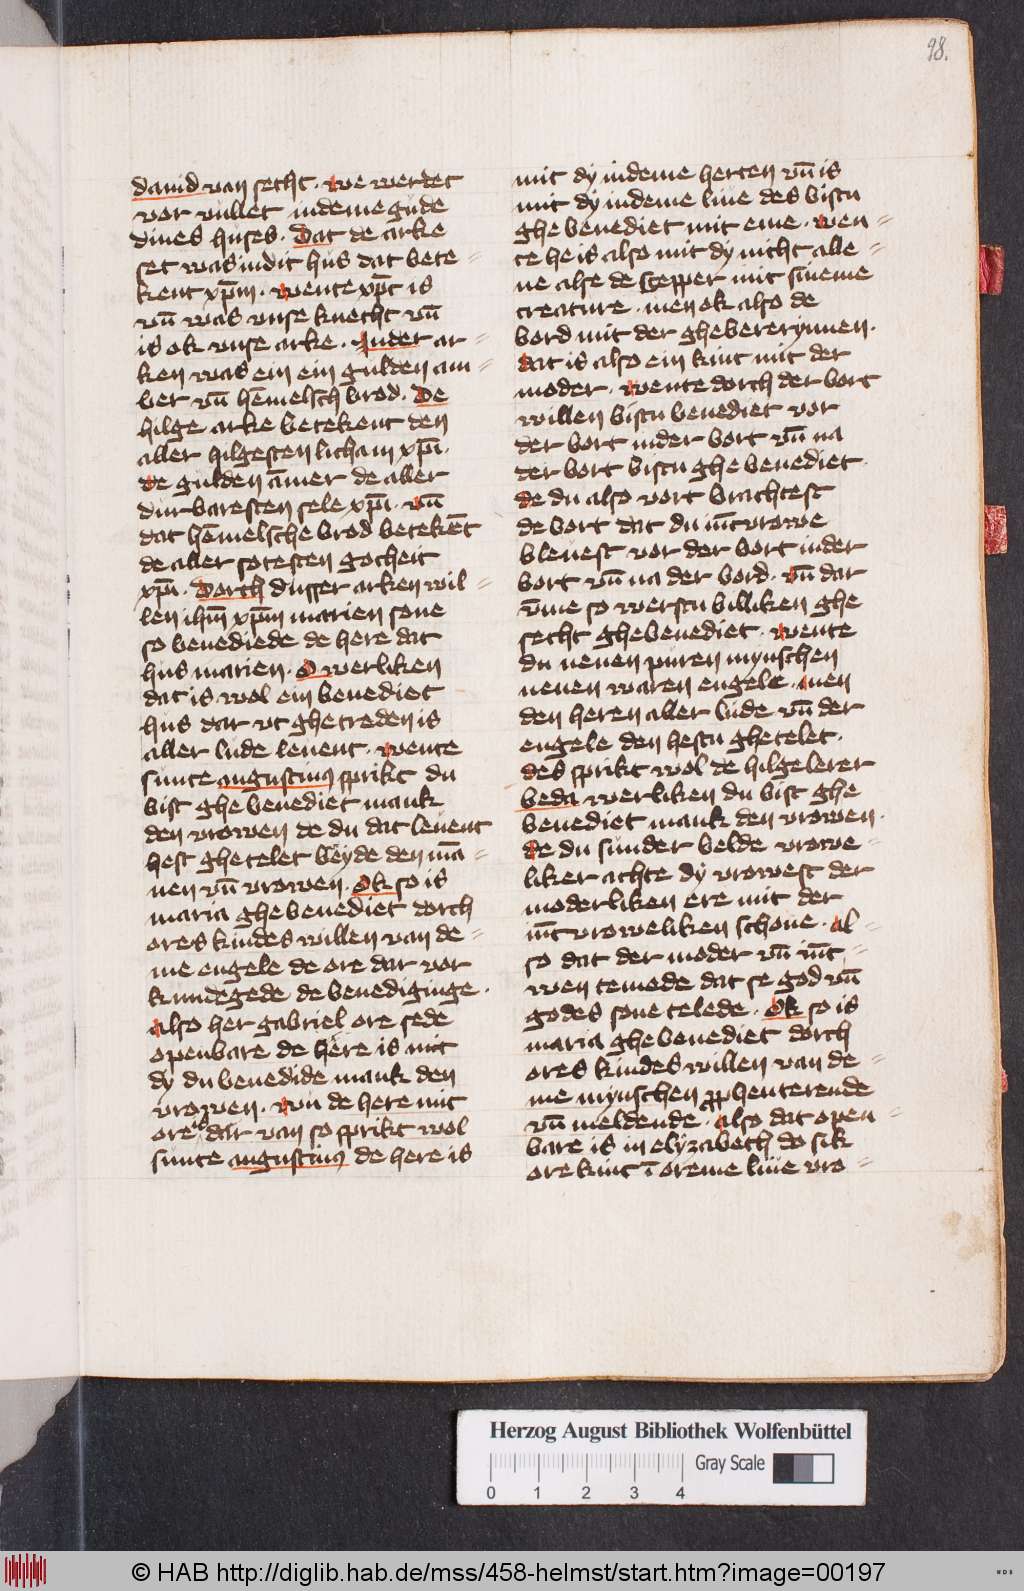 98.
dauid van secht · we werdet
vor vullet indeme gude
dines huses · Dat de arke
set was in dit hus dat bete=
kent xp̄m · wente xp̄c is
vn̄ was vnse knecht vn̄
is ok vnse arke · In der ar=
ken was ein ein gulden am=
ber vn̄ hēmelsch brod · De
hilge arke betekent den
aller hilgesten licham xp̄i ·
de gulden āmer de aller
durbaresten sele xp̄i · vn̄
dat hēmelsche brod betekēt
de aller sotesten gotheit
xp̄i · Dorch dusser arken wil=
len ihm̄ xp̄m marien sone
so benediede de here dat
hus marien · O werliken
dat is wol ein benediet
hus dar vt ghetreden is
aller lude leuent · wente
sunte augustinus sprikt du
bist ghebenediet mank
den vrowen de du dat leuent
hest ghetelet beyde den mā=
nen vn̄ vrowen · Ok so is
maria ghebenediet dorch
ores kindes willen van de=
me engele de ore dar vor
kundegede de benediginge ·
also her gabriel ore sede
openbare de here is mit
dy du benedide mank den
vrowen · wu de here mit
ore is dar van so sprikt wol
sunte augustinus de here is
mit dy indeme herten vn̄ is
mit dy indeme liue des bistu
ghebenediet mit eme · wen=
te he is also mit dy nicht alle=
ne alse de scepper mit sineme
creature · men ok also de
bord mit der ghebererynnen ·
dat is also ein kint mit der
moder · wente dorch der bort
willen bistu benediet vor
der bort in der bort vn̄ na
der bort bistu ghebenediet ·
de du also vort brachtest
de bort dat du iūcvrowe
bleuest vor der bort in der
bort vn̄ na der bord · vn̄ dar
v̄me so werstu billiken ghe
secht ghebenediet · wente
du nenen puren mynschen
nenen waren engele · men
den heren aller lude vn̄ der
engele den hestu ghetelet ·
des sprikt wol de hilge lerer
beda werliken du bist ghe
benediet mank den vrowen ·
de du sunder belde vrowe=
liker achte dy vrowest der
moderliken ere mit der
iūcvroweliken schone · al=
so dat der moder vn̄ iūc=
wen temede dat se god vn̄
godes sone telede · Ok so is
maria ghebenediet dorch
ores kindes willen van de=
me mynschen ꝓphenterende
vn̄ meldende · also dat open=
bare is in elyzabeth do sik
ore kint ī oreme liue vro=
Herzog August Bibliothek Wolfenbüttel
Gray Scale
0 1 2 3 4
© HAB http://diglib.hab.de/mss/458-helmst/start.htm?image=00197